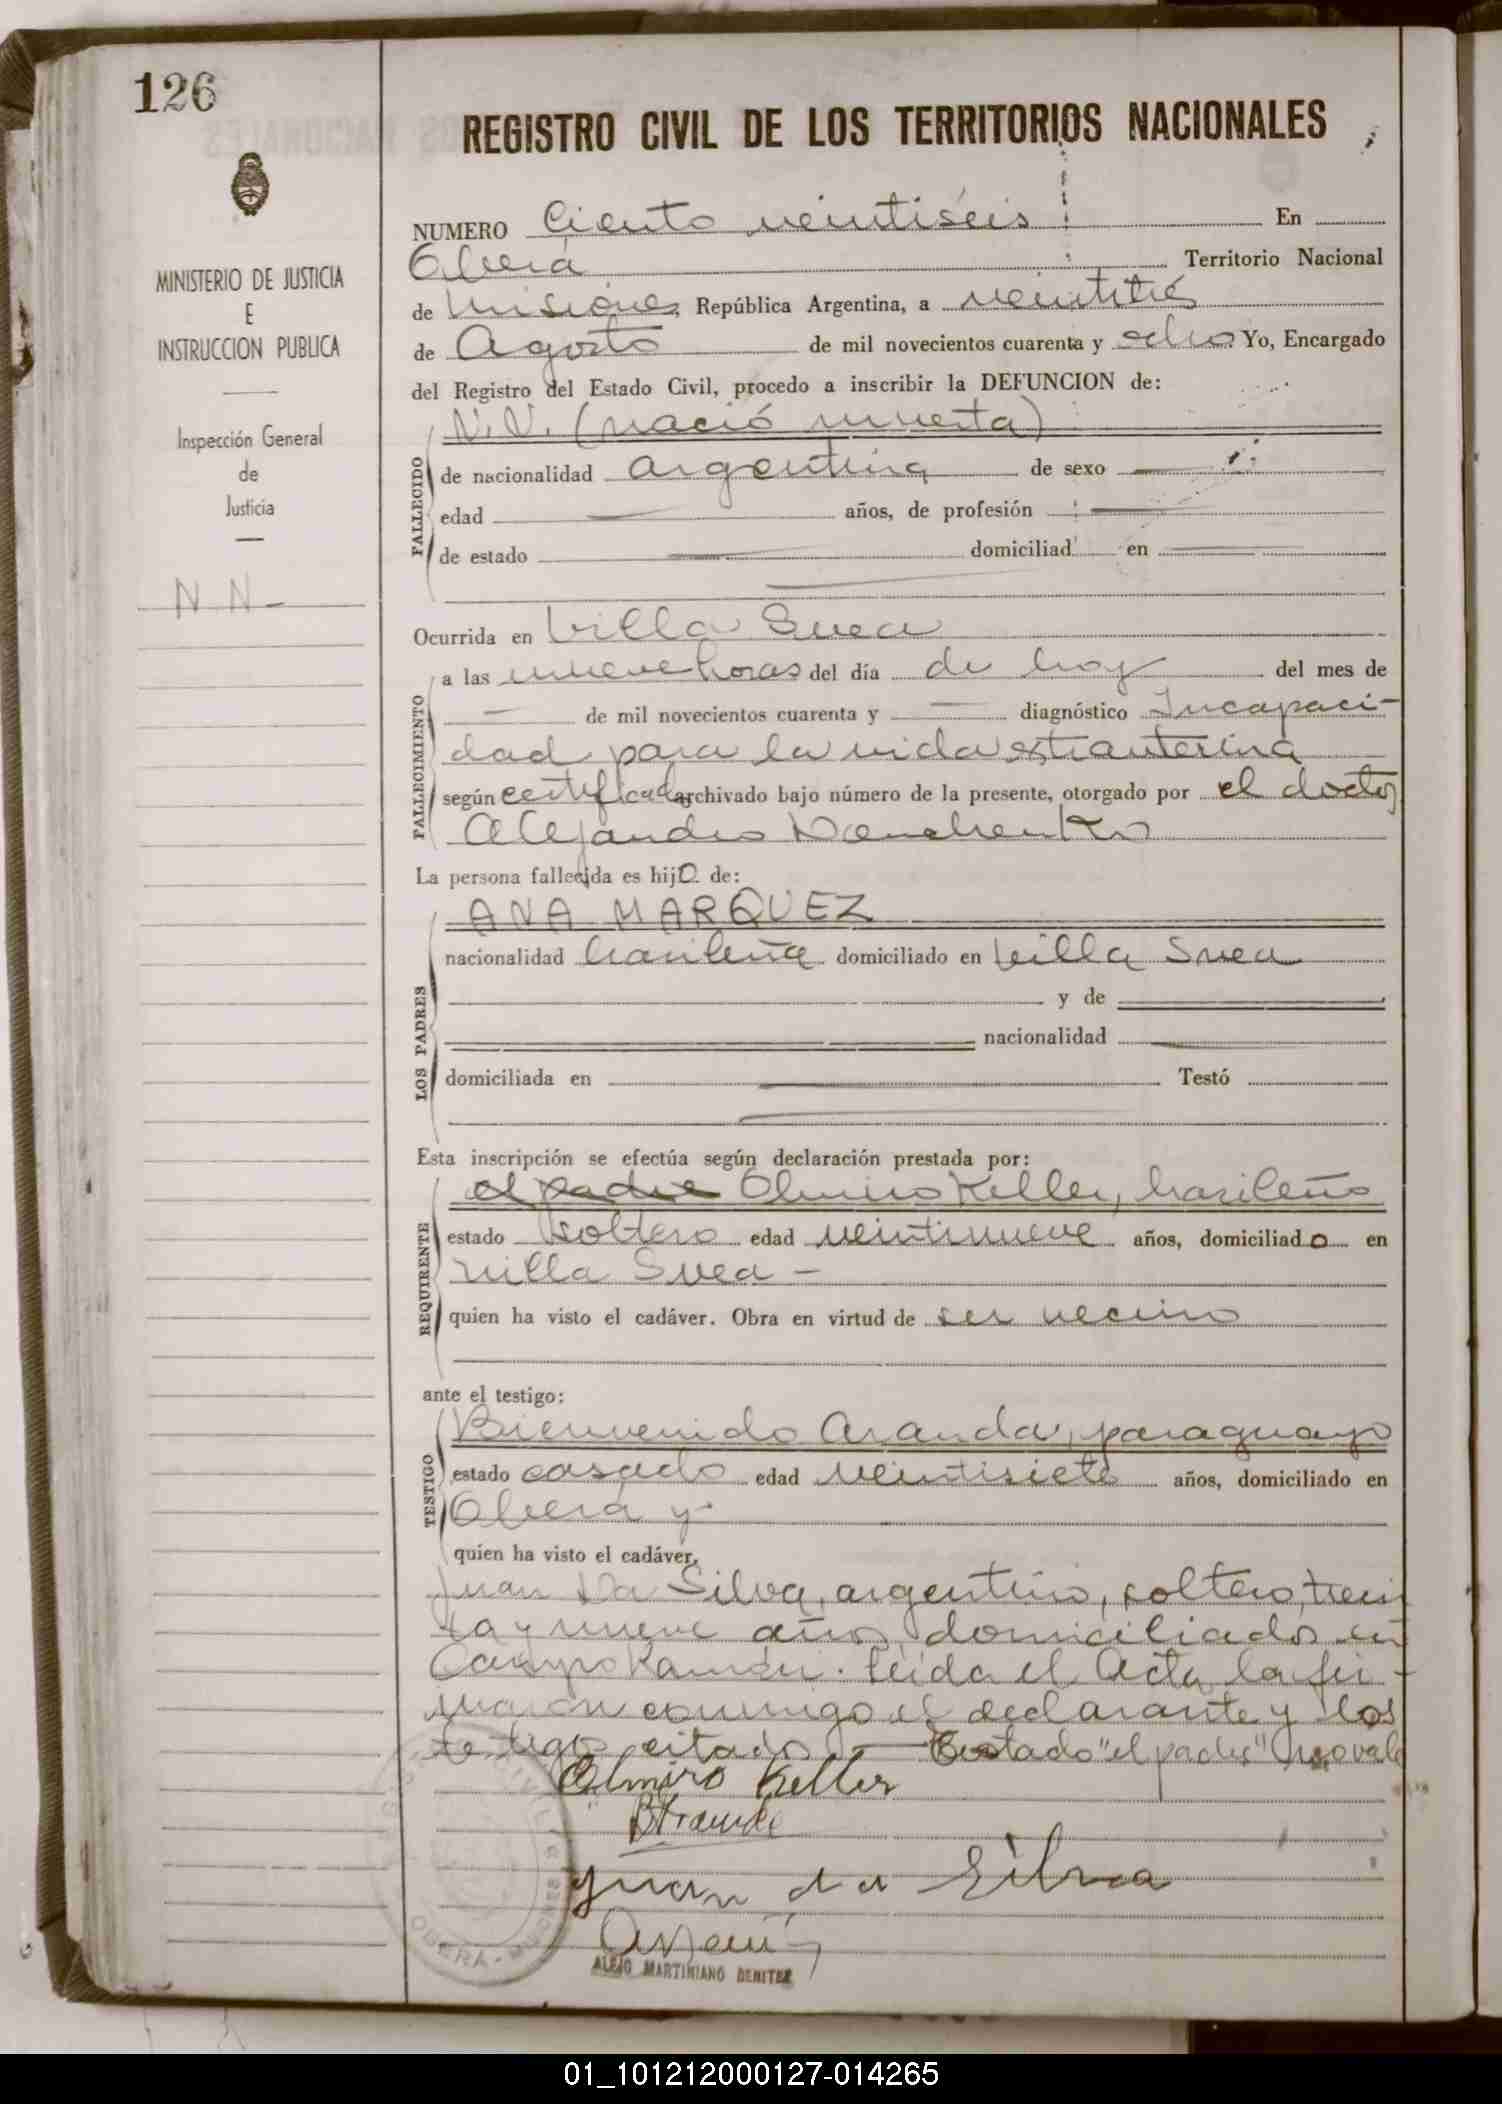 126
REGISTRO CIVIL DE LOS TERRITORIOS NACIONALES
MINISTERIO DE JUSTICIA
E
INSTRUCCION PUBLICA
Inspección General
de
Justicia
N N -
NUMERO Ciento veintiséis En
Oberá Territorio Nacional
de Misiones, República Argentina, a veintitrés
de Agosto de mil novecientos cuarenta y ocho. Yo, Encargado
del Registro del Estado Civil, procedo a inscribir la DEFUNCION de:
N.N. (nació muerta)
FALLECIDO
de nacionalidad argentina de sexo
edad años, de profesión
de estado domiciliad en
Ocurrida en Villa Svea
FALLECIMIENTO
a las nueve horas del día de hoy del mes de
de mil novecientos cuarenta y diagnóstico Incapaci-
dad para la vida extrauterina
según certificado archivado bajo número de la presente, otorgado por el doctor
Alejandro
La persona fallecida es hijo de:
LOS PADRES
ANA MARQUEZ
nacionalidad brasileña domiciliado en Villa Svea
y de
nacionalidad
domiciliada en Testó
Esta inscripción se efectúa según declaración prestada por:
REQUIRENTE
el padre Olmiro Keller, brasileño
estado soltero edad veintinueve años, domiciliado en
Villa Svea -
quien ha visto el cadáver. Obra en virtud de ser vecino
ante el testigo:
TESTIGO
Bienvenido Aranda, paraguayo
estado casado edad veintisiete años, domiciliado en
Oberá y
quien ha visto el cadáver,
Juan Da Silva, argentino, soltero, trein
ta y nueve años, domiciliados en
Campo Ramón. Leída el Acta, la fir-
maron conmigo el declarante y los
testigos citados. - Testado "el padre" no vale
Olmiro Keller
B Aranda
Juan da Silva
OBERA - MISIONES
ALEJO MARTINIANO BENITEZ
01_101212000127-014265